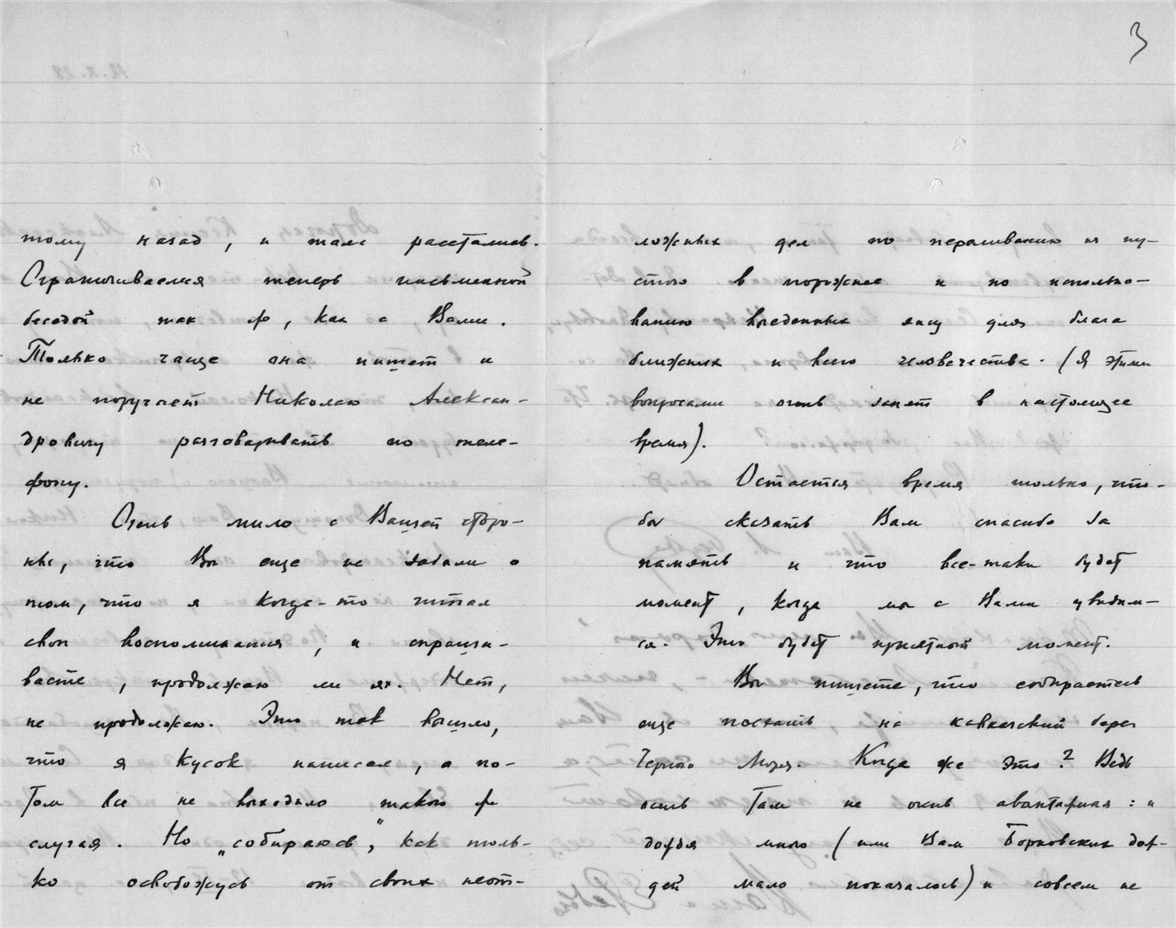 3
тому назад, и там расстались.
Ограничиваемся теперь письменной
беседой так же, как с Вами.
Только чаще она пишет и
не поручает Николаю Алексан-
дровичу разговаривать по теле-
фону.
Очень мило с Вашей сторо-
ны, что Вы еще не забыли о
том, что я когда-то читал
свои воспоминания, и спраши-
ваете, продолжаю ли я. Нет,
не продолжаю. Это так вышло,
что я кусок написал, а по-
том все не выходило такого же
случая. Но „собираюсь", как толь-
ко освобожусь от своих неот-
ложных дел по переливанию из пу-
стого в порожнее и по использо-
ванию выеденных яиц для блага
ближних и всего человечества. (Я этими
вопросами очень занят в настоящее
время).
Остается время только, что-
бы сказать Вам спасибо за
память и что все-таки будет
момент, когда мы с Вами увидим-
ся. Это будет приятный момент.
Вы пишете, что собираетесь
еще поехать на кавказский берег
Черного Моря. Когда же это? Ведь
осень там не очень авантажная: и
дождя много (или Вам Боржомских дож-
дей мало показалось) и совсем не